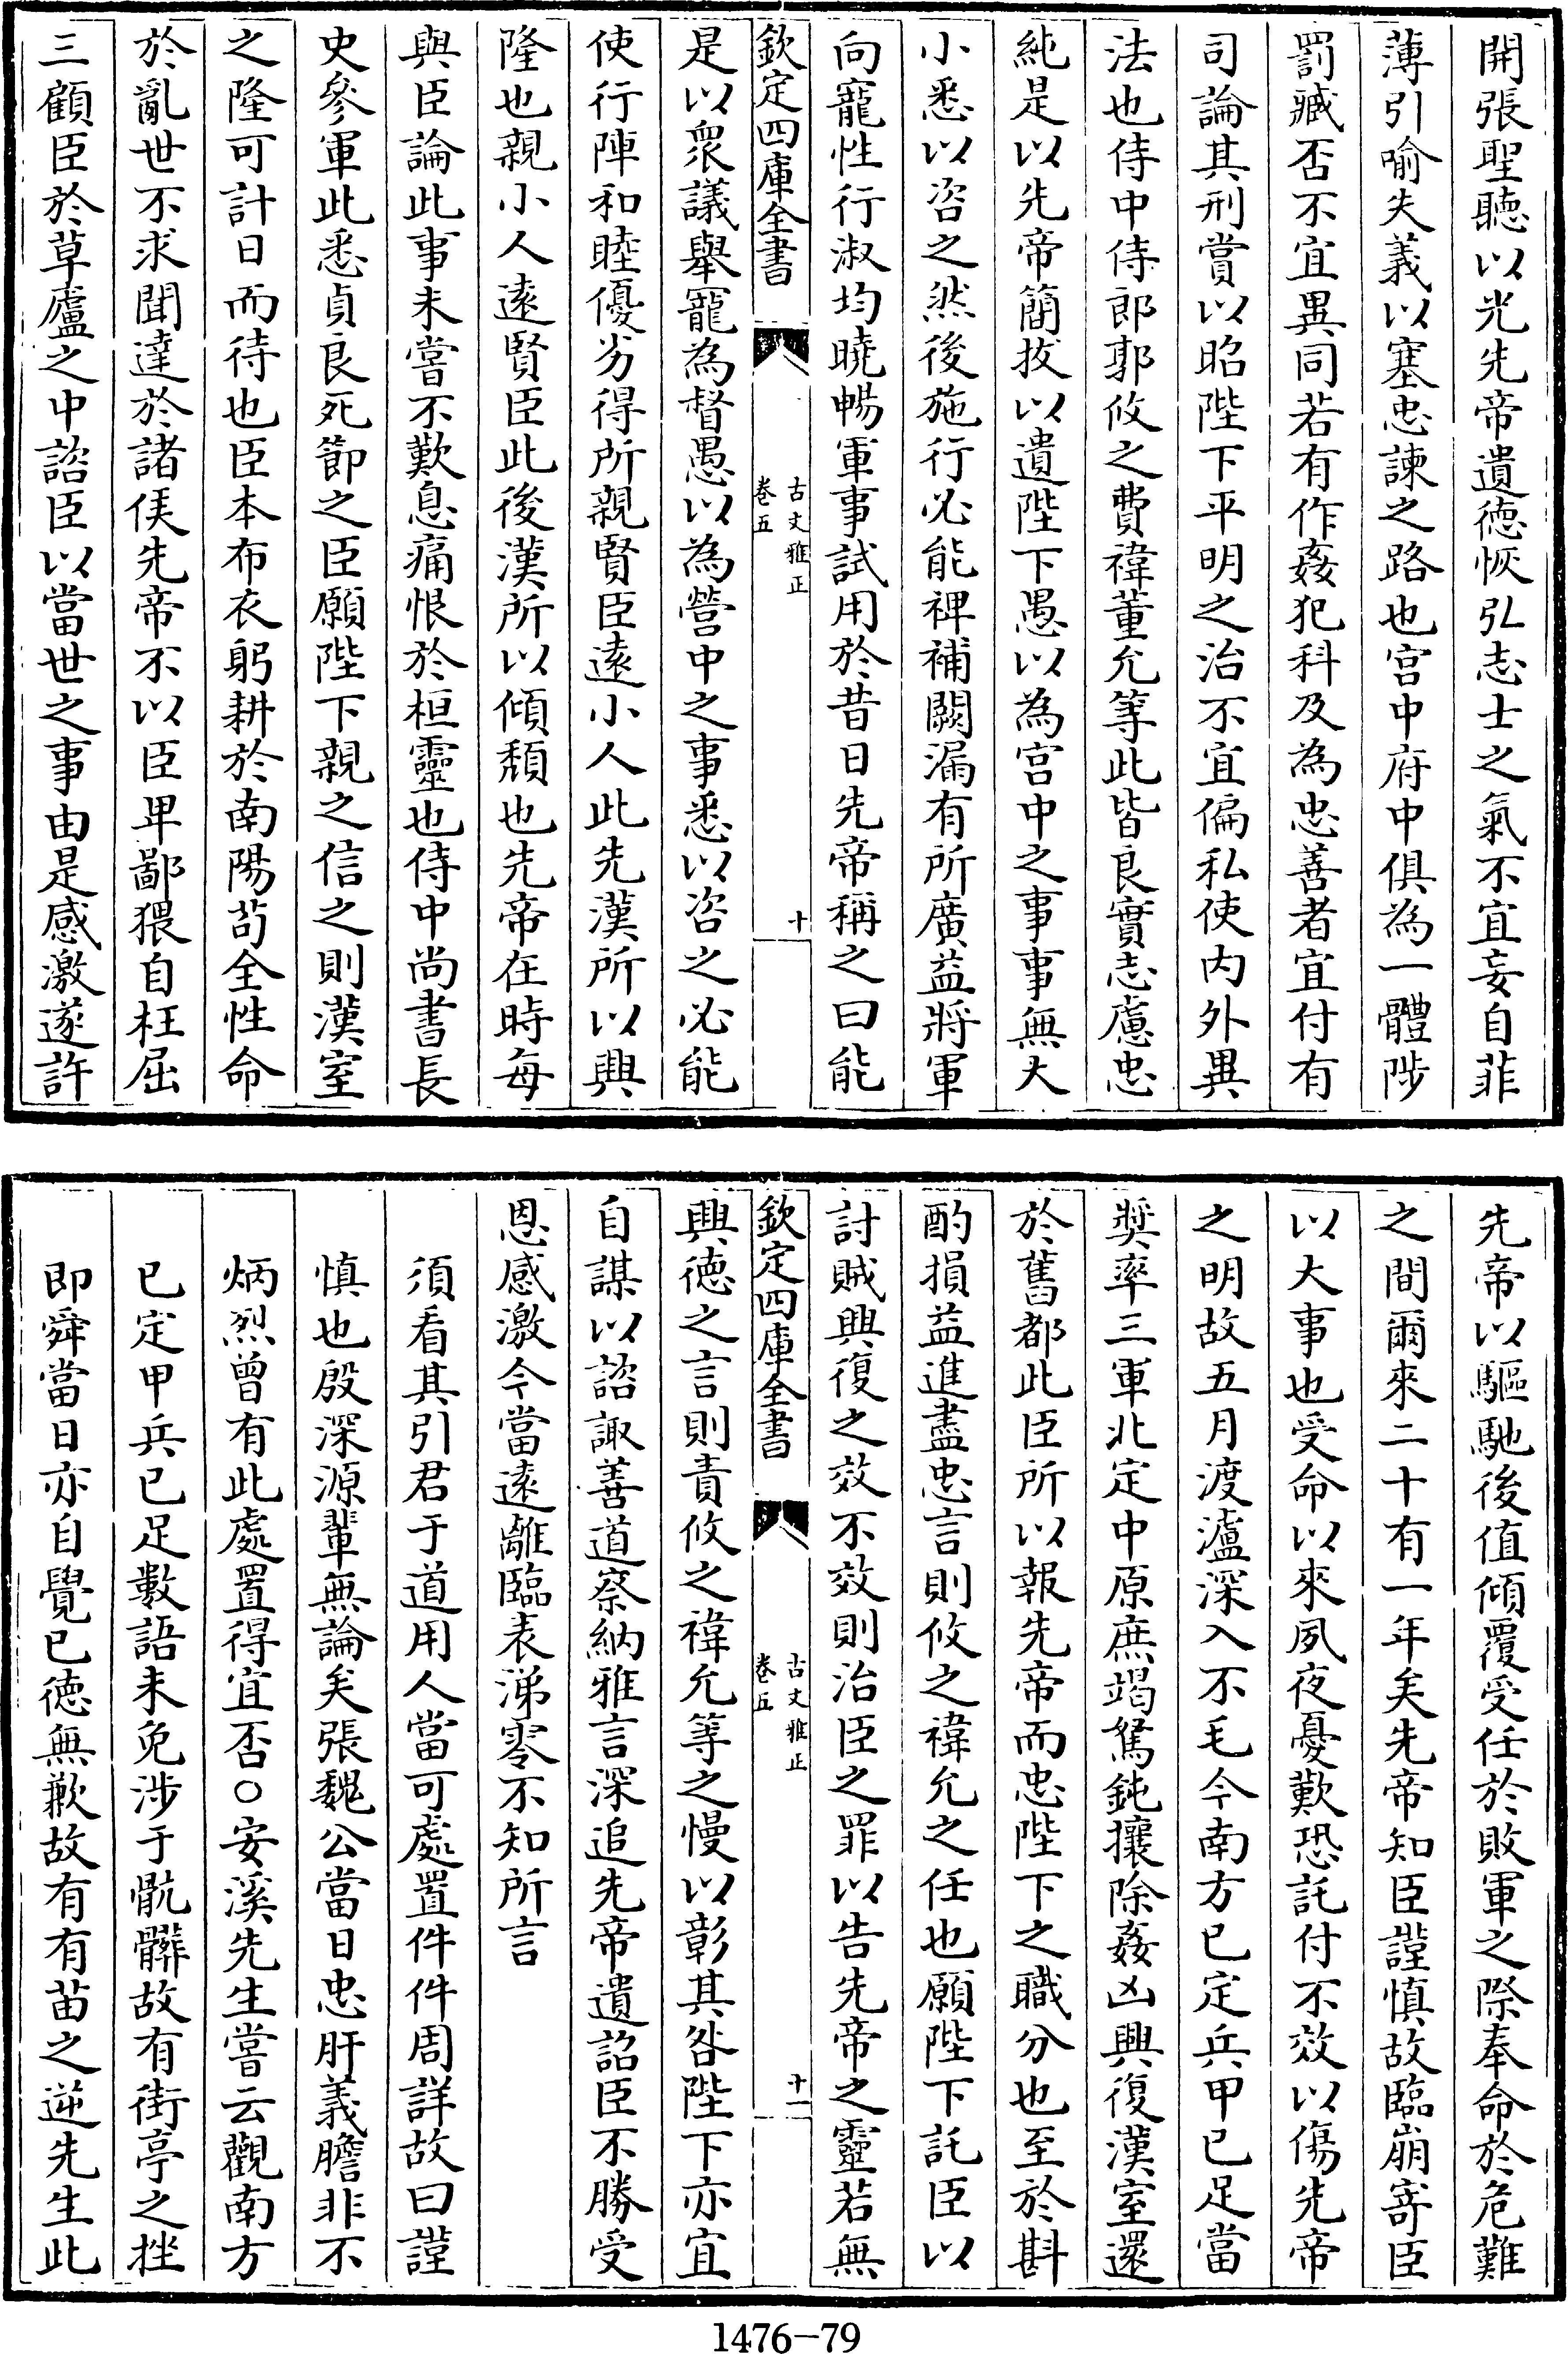 開張聖聽以光先帝遺徳恢弘志士之氣不宜妄自菲
薄引喻失義以塞忠諫之路也宫中府中俱為一體陟
罰臧否不宜異同若有作姦犯科及為忠善者宜付有
司論其刑賞以昭陛下平明之治不宜偏私使内外異
法也侍中侍郎郭攸之費禕董允等此皆良實志慮忠
純是以先帝簡拔以遺陛下愚以為宫中之事事無大
小悉以咨之然後施行必能禆補闕漏有所廣益將軍
向寵性行淑均曉暢軍事試用於昔日先帝稱之曰能
欽定四庫全書
古文雅正
卷五
十
是以衆議舉寵為督愚以為營中之事悉以咨之必能
使行陣和睦優劣得所親賢臣逺小人此先漢所以興
隆也親小人逺賢臣此後漢所以傾頽也先帝在時每
與臣論此事未嘗不歎息痛恨於桓靈也侍中尚書長
史參軍此悉貞良死節之臣願陛下親之信之則漢室
之隆可計日而待也臣本布衣躬耕於南陽苟全性命
於亂世不求聞達於諸侯先帝不以臣卑鄙猥自枉屈
三顧臣於草廬之中諮臣以當世之事由是感激遂許
先帝以驅馳後值傾覆受任於敗軍之際奉命於危難
之間爾來二十有一年矣先帝知臣謹慎故臨崩寄臣
以大事也受命以來夙夜憂歎恐託付不效以傷先帝
之明故五月渡瀘深入不毛今南方已定兵甲已足當
奬率三軍北定中原庶竭駑鈍攘除姦凶興復漢室還
於舊都此臣所以報先帝而忠陛下之職分也至於斟
酌損益進盡忠言則攸之禕允之任也願陛下託臣以
討賊興復之效不效則治臣之罪以告先帝之靈若無
欽定四庫全書
古文雅正
卷五
十一
興徳之言則責攸之禕允等之慢以彰其咎陛下亦宜
自謀以諮諏善道察納雅言深追先帝遺詔臣不勝受
恩感激今當逺離臨表涕零不知所言
須看其引君于道用人當可處置件件周詳故曰謹
慎也殷深源輩無論矣張魏公當日忠肝義膽非不
炳烈曾有此處置得宜否○安溪先生嘗云觀南方
已定甲兵已足數語未免涉于骯髒故有街亭之挫
即舜當日亦自覺已徳無歉故有有苗之逆先生此
1476-79